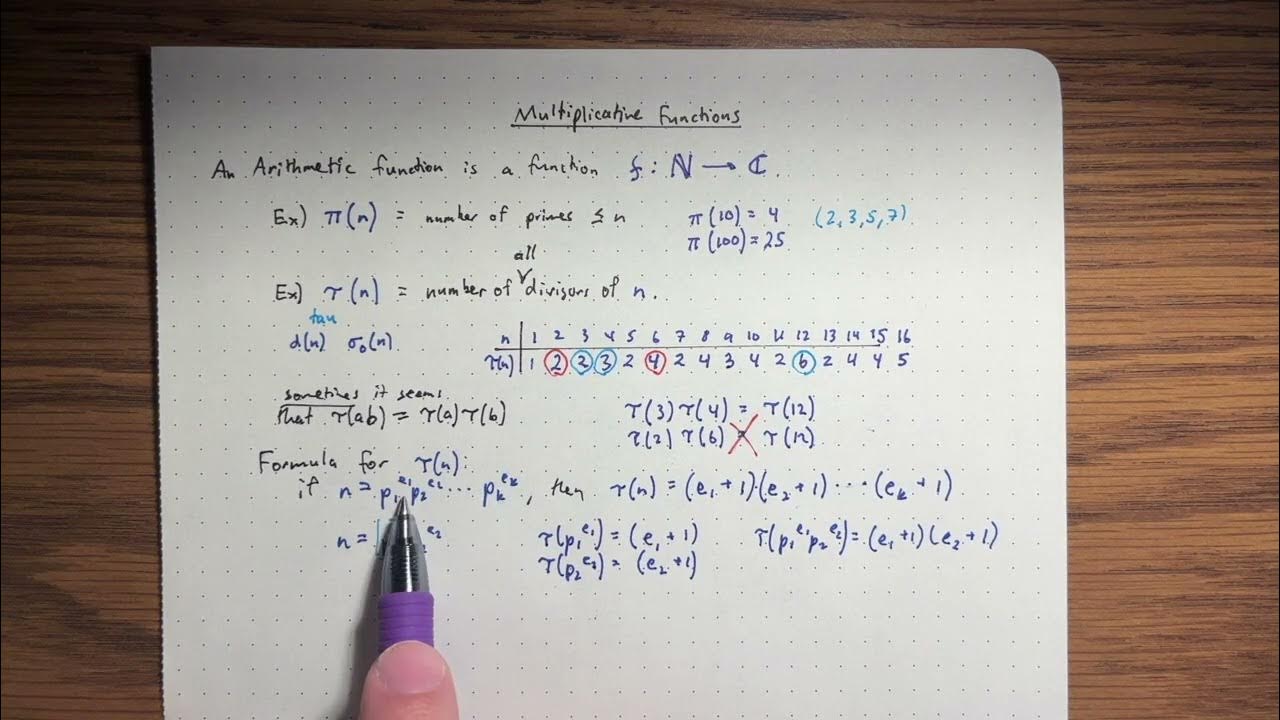 Multiplicative Functions
An Arithmetic function is a function f : ℕ → ℂ
Ex) π(n) = number of primes ≤ n π(10) = 4 (2,3,5,7)
π(100) = 25
all
Ex) τ(n) = number of ∨ divisors of n.
tau
d(n) σ₀(n)
n 1 2 3 4 5 6 7 8 9 10 11 12 13 14 15 16
τ(n) 1 2 2 3 2 4 2 4 3 4 2 6 2 4 4 5
sometimes it seems
that τ(ab) = τ(a)τ(b)
τ(3)τ(4) = τ(12)
τ(2)τ(6) = τ(12)
Formula for τ(n):
if n = p₁^e₁ p₂^e₂ ⋯ pₖ^eₖ, then τ(n) = (e₁ + 1)·(e₂ + 1) ⋯ (eₖ + 1)
n = e₂ τ(p₁^e₁) = (e₁ + 1) τ(p₁^e₁ p₂^e₂) = (e₁ + 1)(e₂ + 1)
τ(p₂^e₂) = (e₂ + 1)